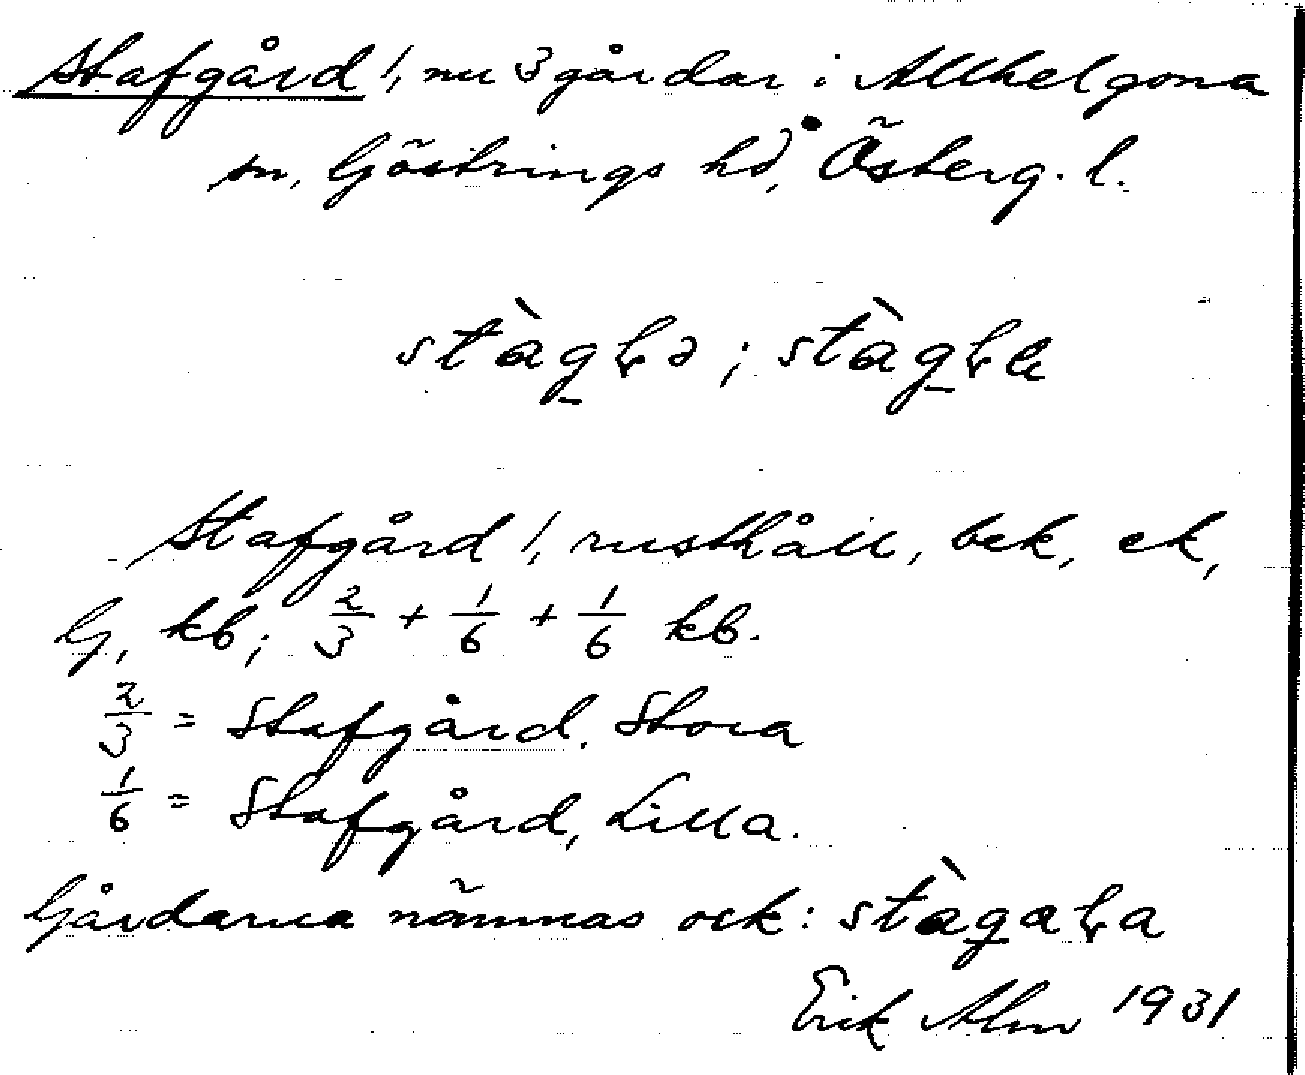 Stafgård !, nu 3 gårdar i Allhelgona
sn, Göstrings hd, Österg. l.
Stafgård !, rusthåll, bek, ek,
G, kb; 2/3 + 1/6 + 1/6 kb.
2/3 = Stafgård, Stora
1/6 = Stafgård, Lilla.
Gårdarna nämnas ock:
Erik Alm 1931